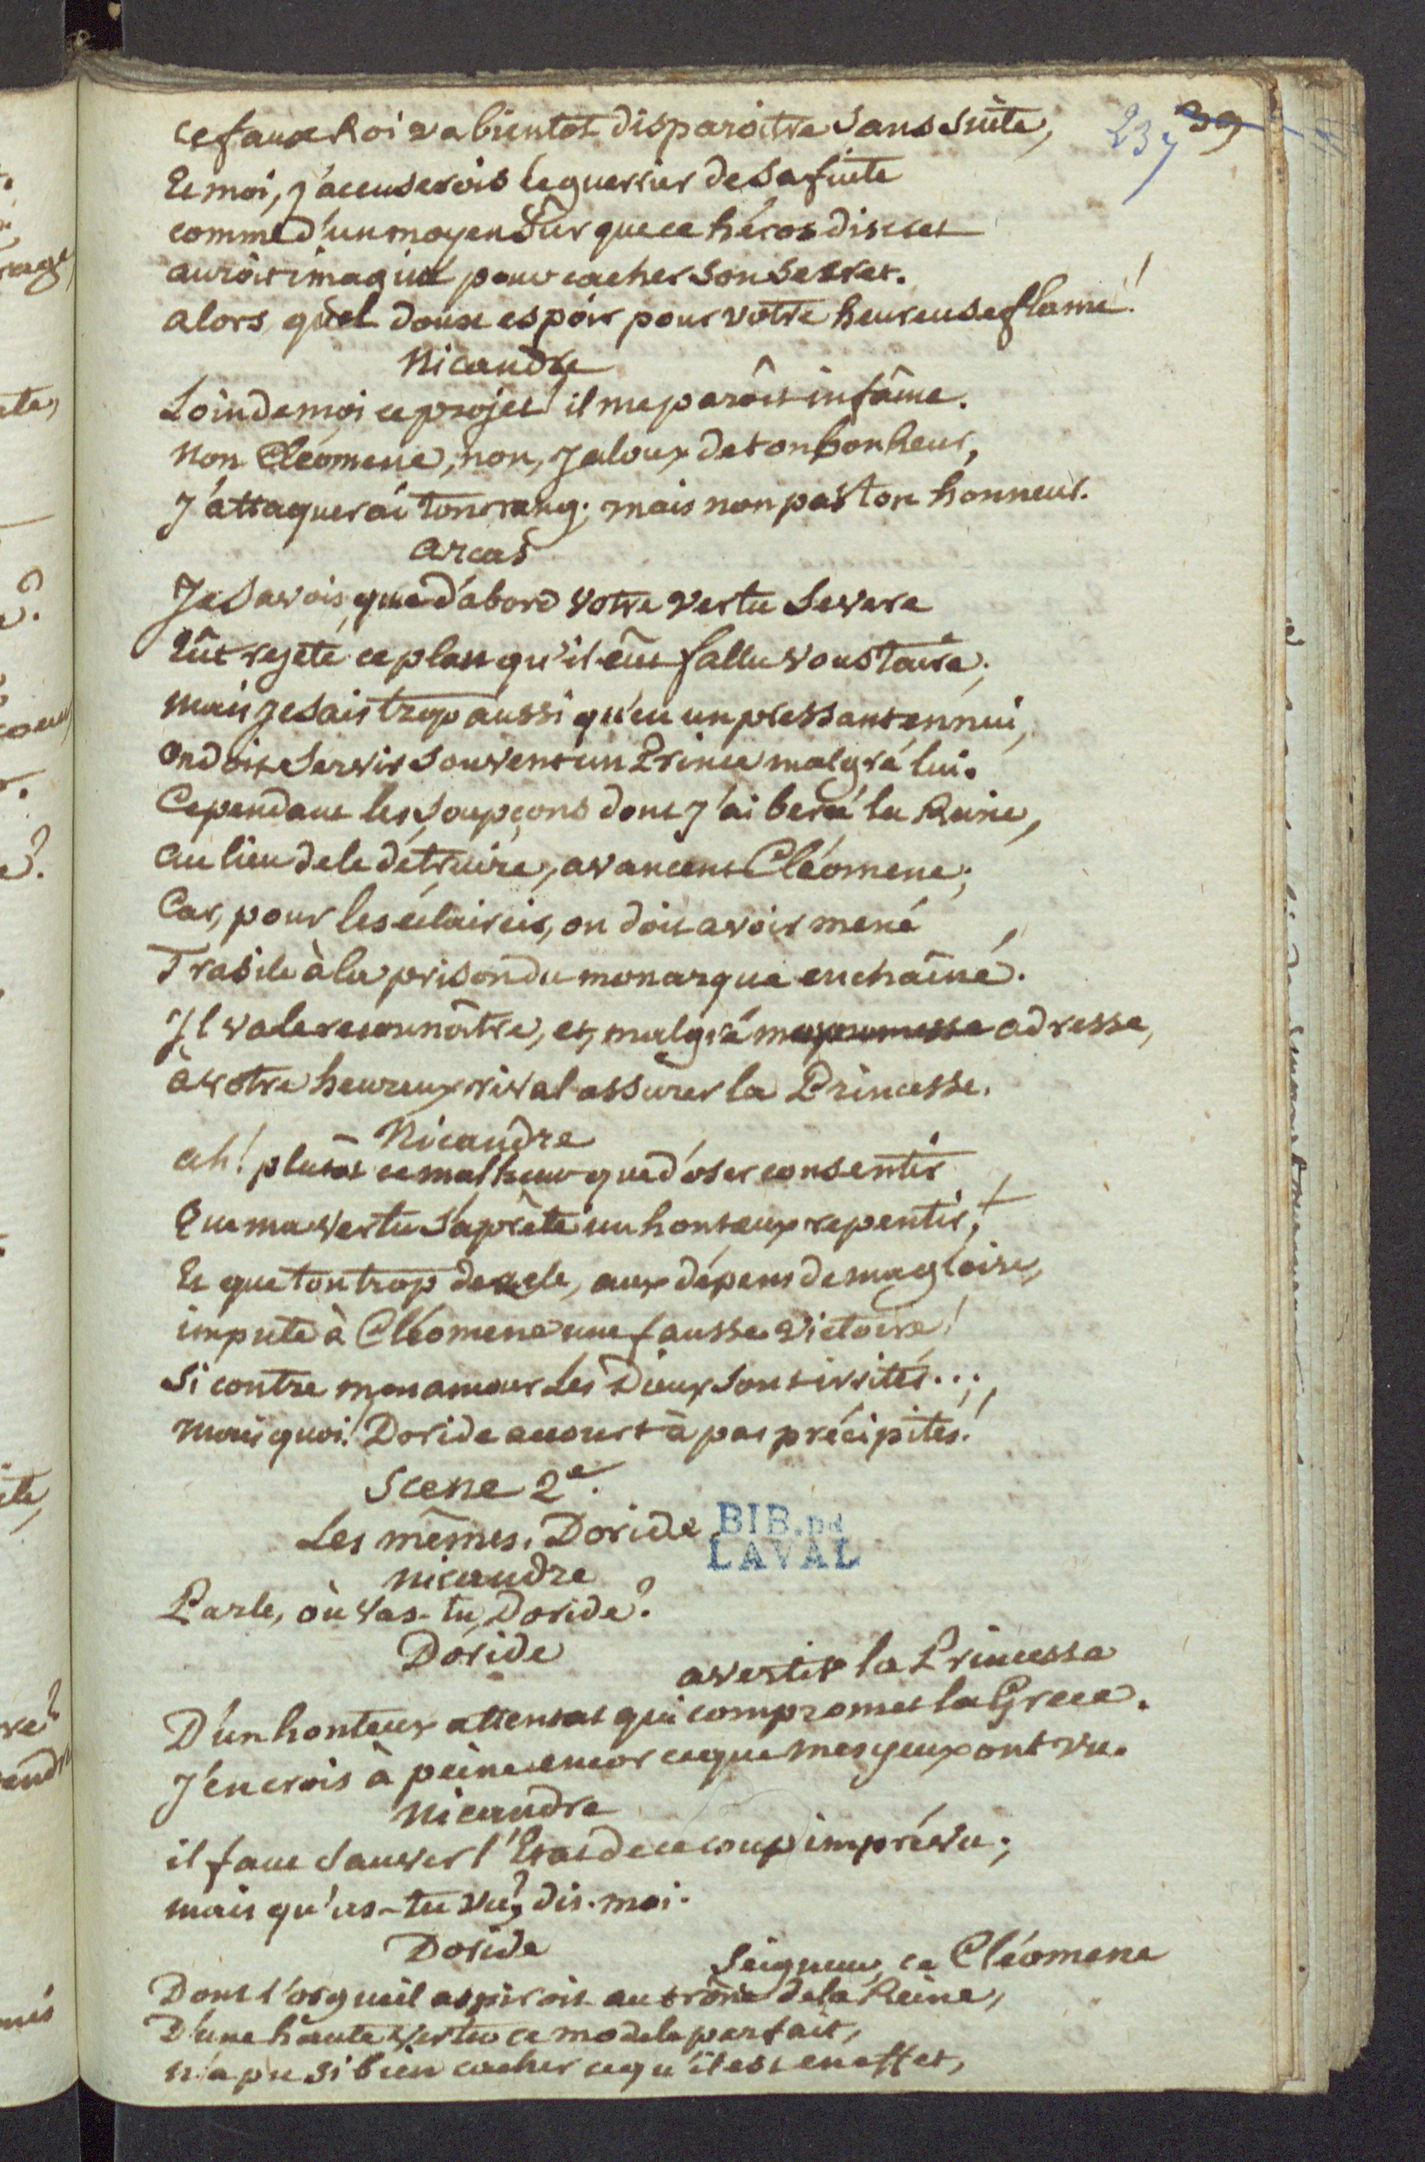 237 39
ce faux Roi va bientot disparoitre sans suite,
Et moi, j'accuserois le guerrier de sa fuite
comme d'un moyen sûr que ce héros discret
auroit imaginé pour cacher son secret.
alors quel doux espoir pour votre heureuse flame!
Nicandre
Loin de moi ce projet! il me parôit infâme.
Non Cléomene, non, jaloux de ton bonheur,
J'attaquerai ton rang; mais non pas ton honneur.
arcas
Je savois que d'abord votre vertu severe
Eût rejeté ce plan qu'il eût fallu vous taire;
mais je sais trop aussi qu'en un pressant ennui,
on doit servir souvent un Prince malgré lui.
Cependant les soupçons dont j'ai bercé la Reine,
au lieu de le détruire, avancent Cléomene;
Car, pour les éclaircir, on doit avoir mené
Trasile à la prison du monarque enchaîné.
Il va le reconnoître, et, malgré ma promesse adresse,
à votre heureux rival assurer la Princesse.
Nicandre
ah! plutot ce malheur que d'oser consentir
Que ma vertu s'aprête un honteux repentir, +
Et que ton trop de zele, aux dépens de ma gloire,
impute à Cléomene une fausse victoire!
Si contre mon amour les Dieux sont irrités...;
mais quoi! Doride accourt à pas précipités!
Scene 2e.
Les mêmes, Doride
BIB. DE
LAVAL
nicandre
Parle, où vas-tu, Doride?
Doride
avertir la Princesse
D'un honteux attentat qui compromet la Grece.
J'en crois à peine encor ce que mes yeux ont vu.
Nicandre
il faut sauver l'Etat de ce coup imprévu;
mais qu'as-tu vu? dis-moi.
Doride
Seigneur, ce Cléomene
Dont l'orgueil aspiroit au trône de la Reine,
D'une haute vertu ce modele parfait,
n'a pu si bien cacher ce qu'il est en effet,